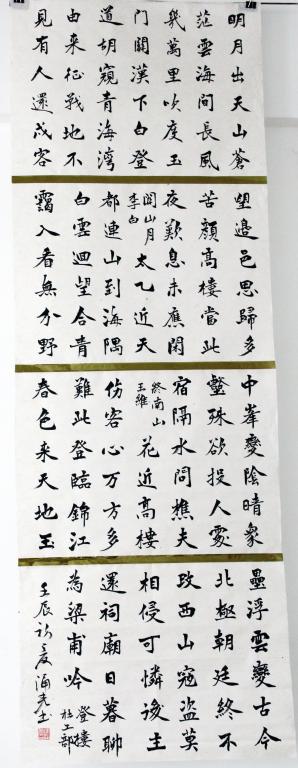 明月出天山蒼
茫雲海間長風
幾萬里吹度玉
門關漢下白登
道胡窺青海灣
由來征戰地不
見有人還戍客
望邊邑思歸多
苦顏高樓當此
夜歎息未應閑
關山月
李白
太乙近天
都連山到海隅
白雲迴望合青
靄入看無分野
中峯變陰晴衆
壑殊欲投人處
宿隔水問樵夫
終南山
王維
花近高樓
傷客心万方多
難此登臨錦江
春色来天地玉
壘浮雲變古今
北極朝廷終不
改西山寇盜莫
相侵可憐後主
還祠廟日暮聊
為梁甫吟
登樓
杜工部
壬辰初夏